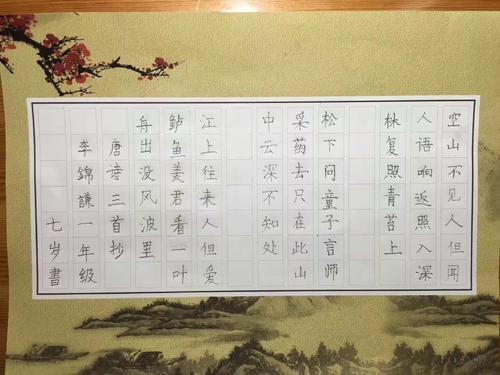 空山不见人但闻
人语响返照入深
林复照青苔上
松下问童子言师
采药去只在此山
中云深不知处
江上往来人但爱
鲈鱼美君看一叶
舟出没风波里
唐诗三首抄
李錦謙一年级
七岁書